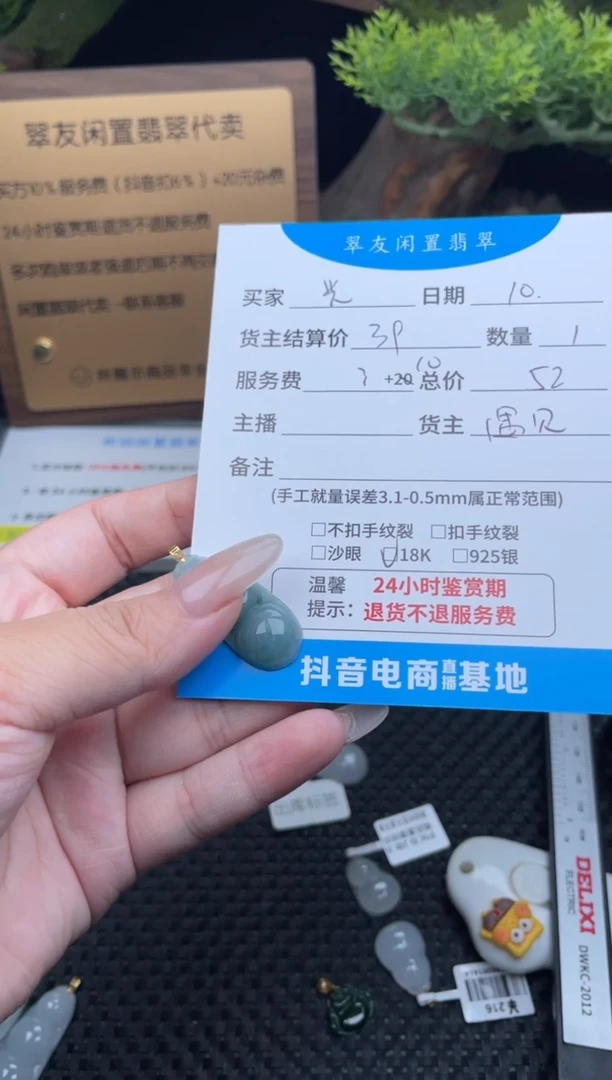 翠友闲置翡翠代卖
买方10%服务费（抖音扣6%）+20元杂费
24小时鉴赏期退货不退服务费
翠友闲置翡翠
买家 光 日期 10.
货主结算价 39 数量 1
服务费 3 +20 10 总价 52
主播 货主 遇见
备注
(手工就量误差3.1-0.5mm属正常范围)
□不扣手纹裂 □扣手纹裂
□沙眼 □18K □925银
温馨 24小时鉴赏期
提示：退货不退服务费
抖音电商直播基地
出库标签
DELIXI
ELECTRIC
DWKC-2012
¥216